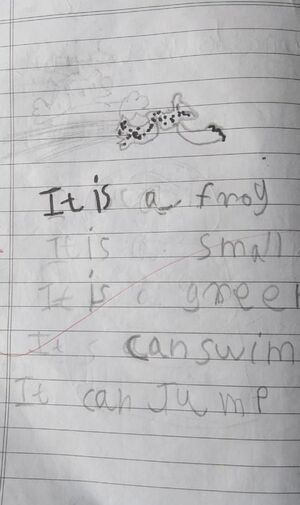 It is a frog
It is small
It is gree
It s can swim
It can Jump